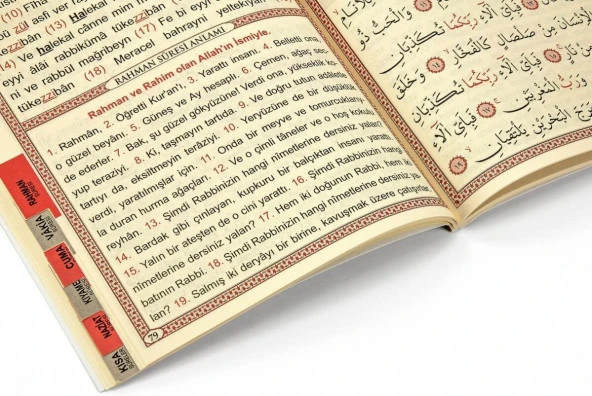 ve rabbül mağribeyn (18)
eyyi âlâi rabbikümâ
tükezzibân (17)
Fe bi eyyi
tükezzibân. (18) Meracel bahrayni yeltekıyân
RAHMAN SÛRESİ ANLAMI
Rahman ve Rahim olan Allah'ın ismiyle.
1. Rahmân, 2. Öğretti Kur'an'ı, 3. Yarattı insanı. 4. Belletti ona,
o güzel beyânı. 5. Güneş ve Ay hesaplı. 6. Çemen, ağaç, sec-
de ederler. 7. Bak, şu güzel gökyüzüne! Verdi ona, yükseklik ko-
yup teraziyi. 8. Ki, taşmayın tartıda. 9. Ve doğru tutun adâletle
tartıyı da, eksiltmeyin terâziyi. 10. Yeryüzüne de bir düşüklük
verdi, yaratılmışlar için. 11. Onda bir meyve ve tomurcuklarıy-
la duran hurma ağaçları. 12. Ve o çimli tâneler ve o hoş kokulu
reyhân. 13. Şimdi Rabbinizin hangi nîmetlerine dersiniz yalan?
14. Bardak gibi çınlayan, kupkuru bir balçıktan insanı yarattı.
15. Yalın bir ateşten de o cini yarattı. 16. Şimdi Rabbinizin hangi
nîmetlerine dersiniz yalan? 17. Hem iki doğunun Rabbi, hem iki
batının Rabbi. 18. Şimdi Rabbinizin hangi nîmetlerine dersiniz ya-
lan? 19. Salmış iki deryâyı bir birine, kavuşmak üzere çalışırlar.
79
RAHMAN SÛRESİ
VAKIA SÛRESİ
CUMA SÛRESİ
KIYAME SÛRESİ
NAZİAT SÛRESİ
KISA SÛRELER
فَبِاَيِّ اٰلَاءِ رَبِّكُمَا تُكَذِّبَانِ
مِنْ صَلْصَالٍ كَالْفَخَّارِ ﴿١٤﴾ وَخَلَقَ
فَبِاَيِّ اٰلَاءِ رَبِّكُمَا تُكَذِّبَانِ
وَرَبُّ الْمَغْرِبَيْنِ ﴿١٧﴾ فَبِاَيِّ اٰلَاءِ
مَرَجَ الْبَحْرَيْنِ يَلْتَقِيَانِ ﴿١٩﴾